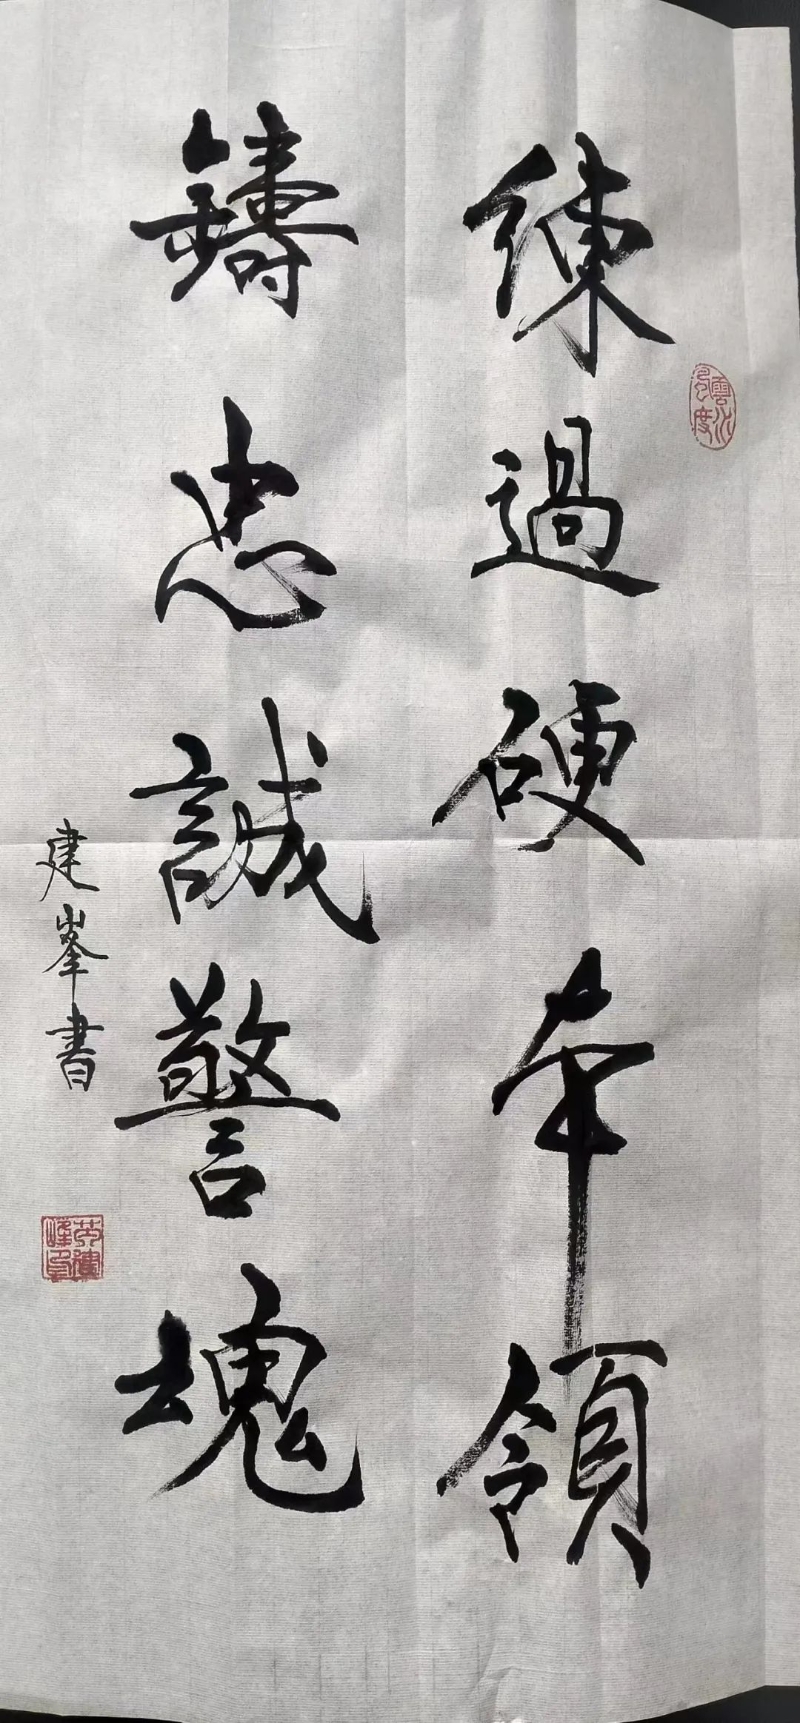 練過硬本領
鑄忠誠警魂
建峯書